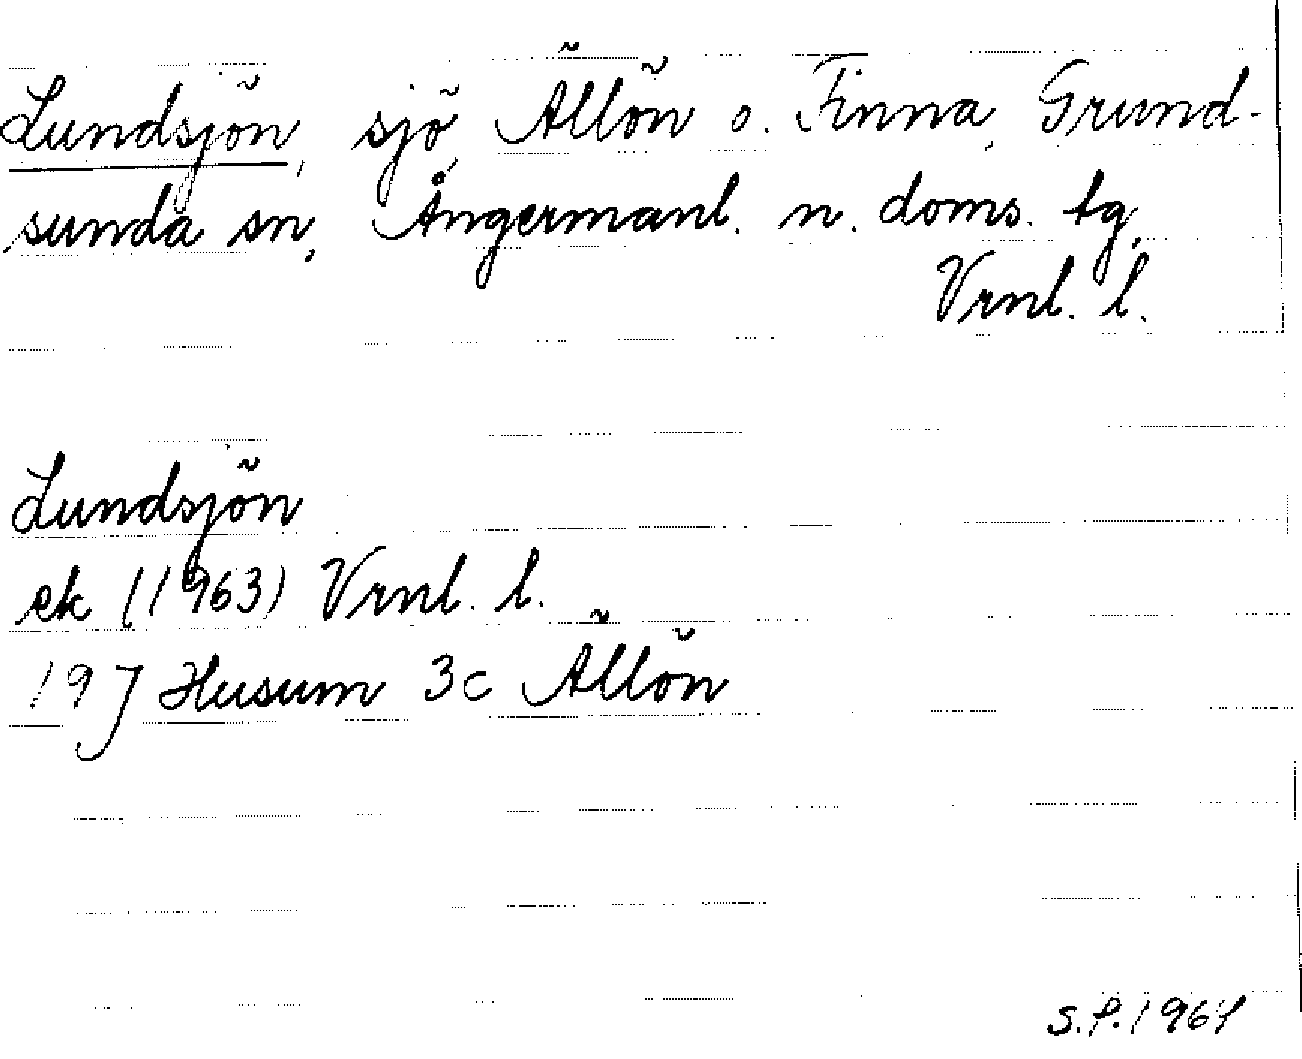 Lundsjön, sjö, Ällön o. Finna, Grund-
sunda sn, Ångermanl. n. doms. tg,
Vrnl. l.
Lundsjön
ek (1963) Vrnl. l.
19J Husum 3c Ällön
S.P. 1964